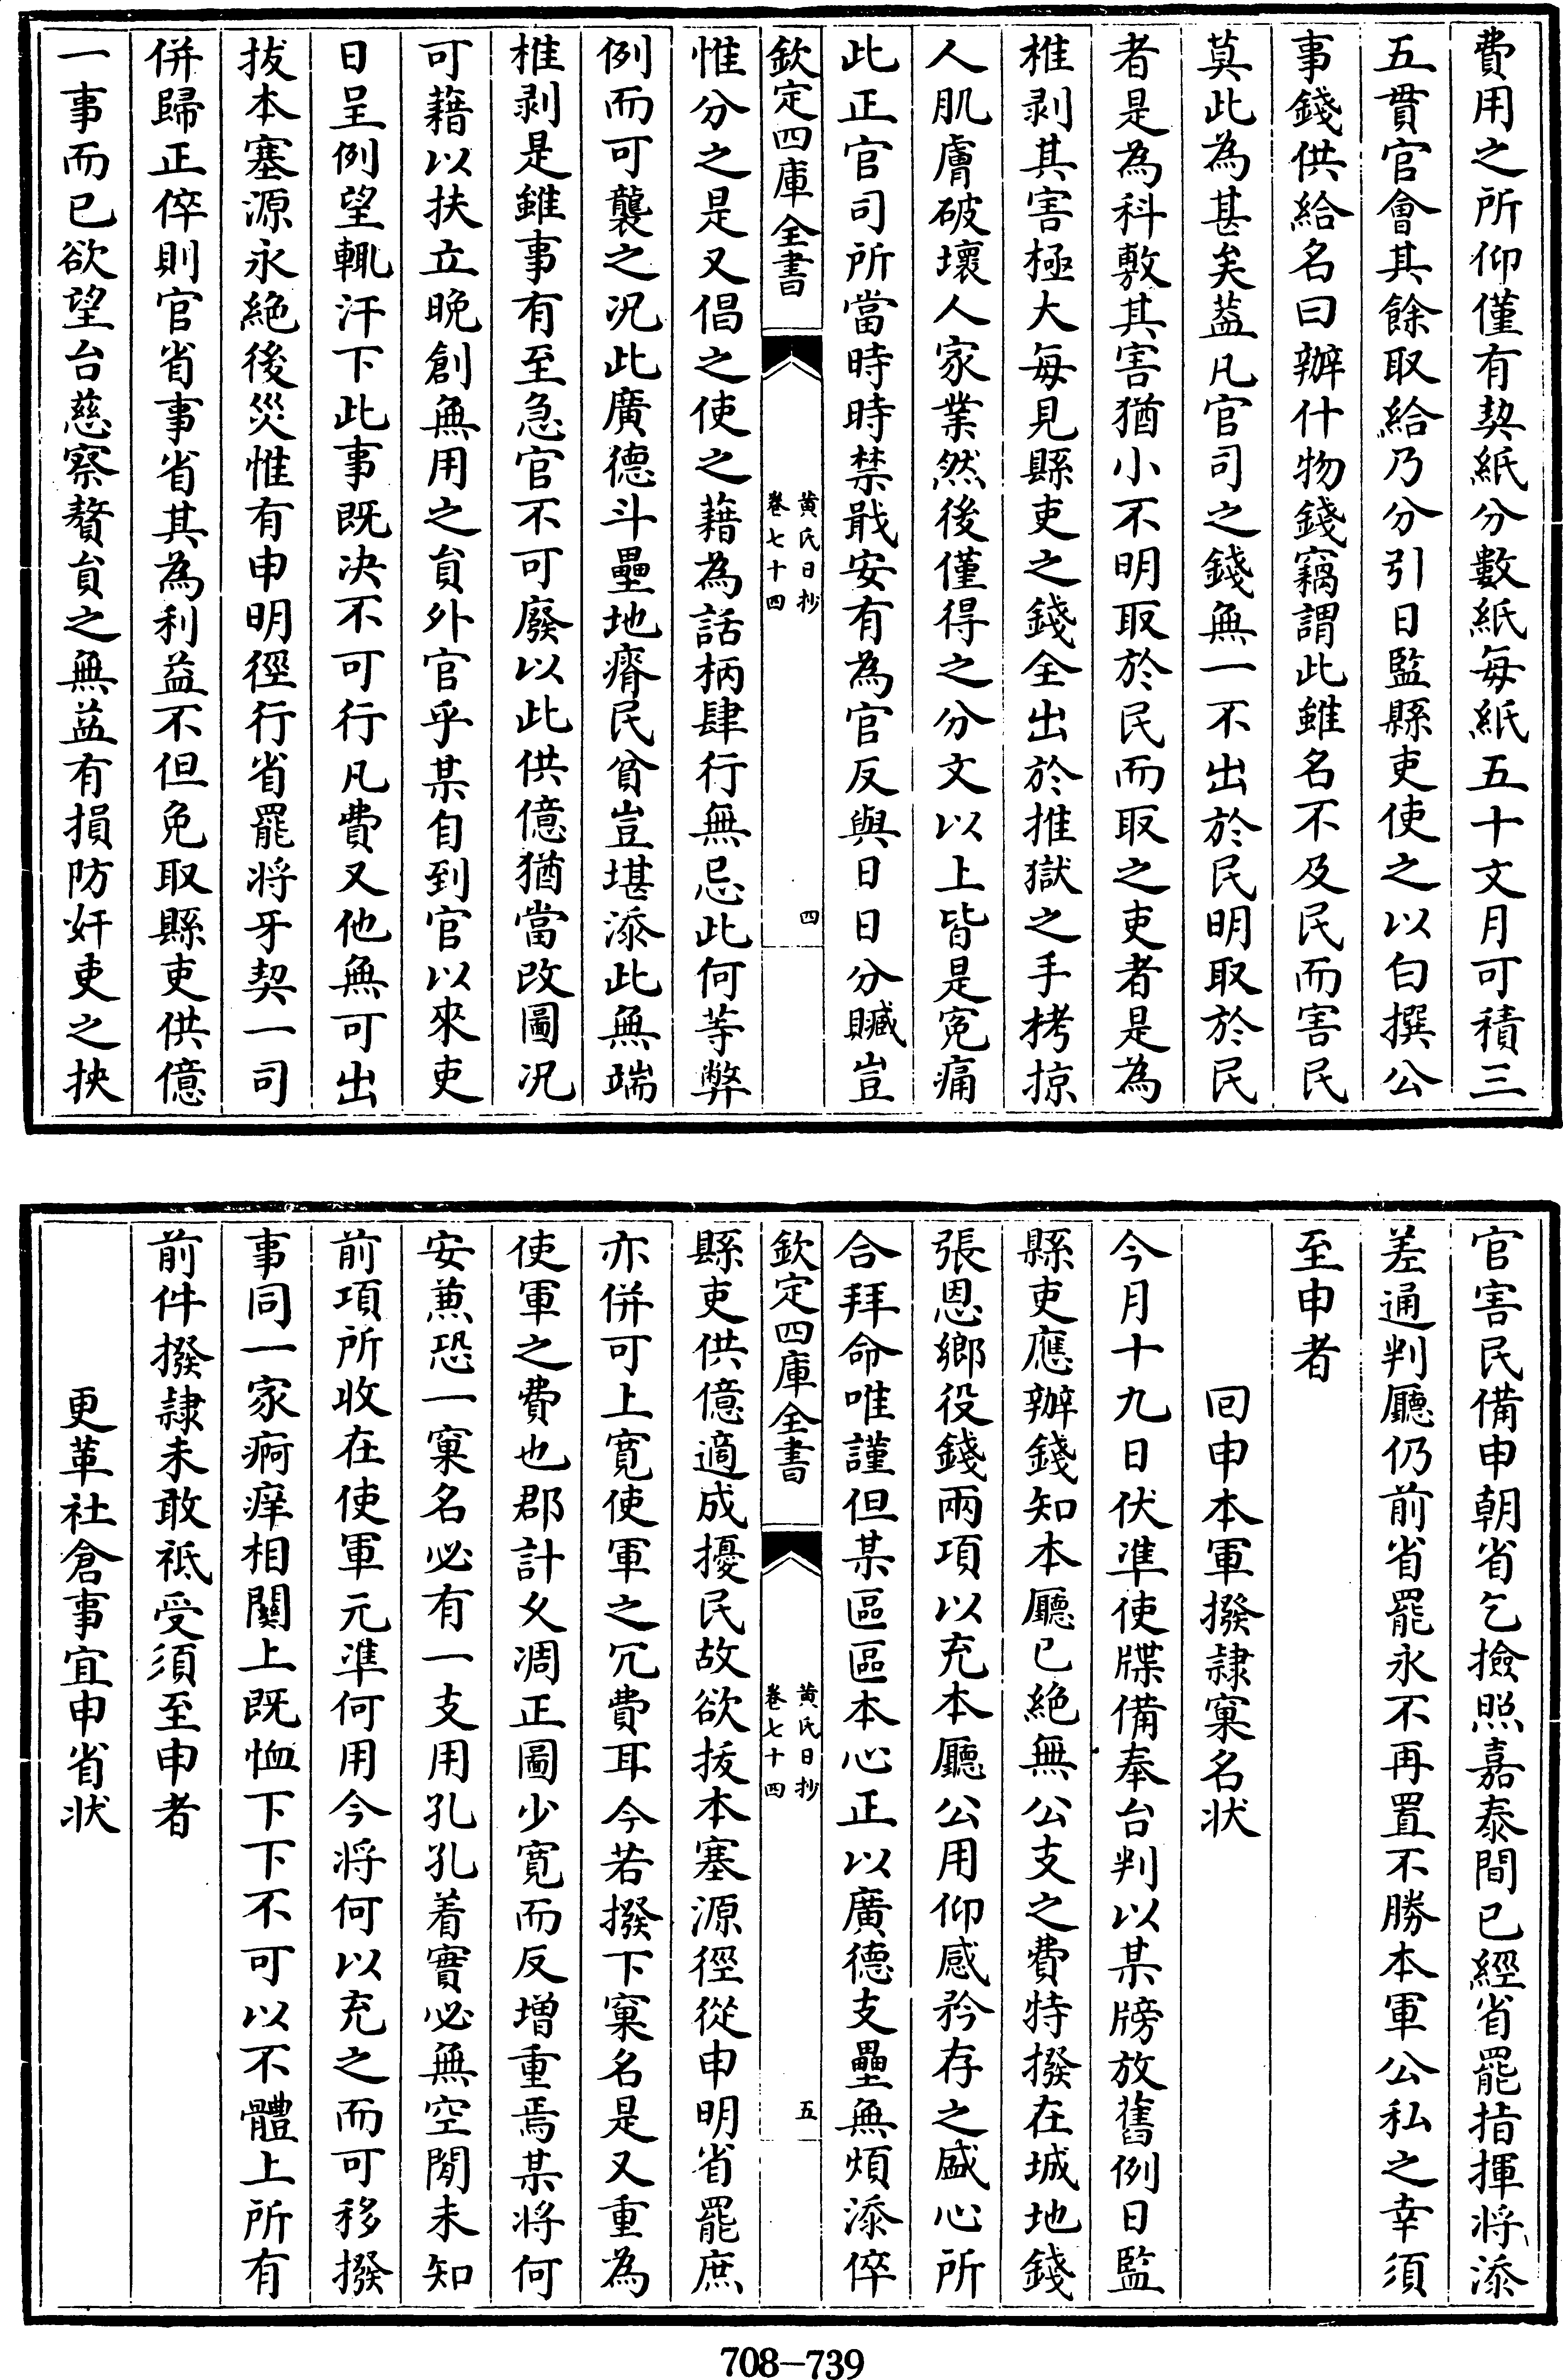 費用之所仰僅有契紙分數紙每紙五十文月可積三
五貫官會其餘取給乃分引日監縣吏使之以白撰公
事錢供給名曰辦什物錢竊謂此雖名不及民而害民
莫此為甚矣葢凡官司之錢無一不出於民明取於民
者是為科敷其害猶小不明取於民而取之吏者是為
椎剥其害極大每見縣吏之錢全出於推獄之手拷掠
人肌膚破壞人家業然後僅得之分文以上皆是寃痛
此正官司所當時時禁戢安有為官反與日日分贓豈
欽定四庫全書
黄氏日抄
卷七十四
四
惟分之是又倡之使之藉為話柄肆行無忌此何等弊
例而可襲之况此廣德斗壘地瘠民貧豈堪添此無端
椎剥是雖事有至急官不可廢以此供億猶當改圖况
可藉以扶立晩創無用之貟外官乎某自到官以來吏
日呈例望輒汗下此事既决不可行凡費又他無可出
拔本塞源永絶後災惟有申明徑行省罷将牙契一司
併歸正倅則官省事省其為利益不但免取縣吏供億
一事而已欲望台慈察贅貟之無益有損防奸吏之抰
官害民備申朝省乞撿照嘉泰間已經省罷指揮将添
差通判廳仍前省罷永不再置不勝本軍公私之幸須
至申者
回申本軍撥隷窠名状
今月十九日伏凖使牒備奉台判以某牓放舊例日監
縣吏應辦錢知本廳已絶無公支之費特撥在城地錢
張恩鄉役錢兩項以充本廳公用仰感矜存之盛心所
合拜命唯謹但某區區本心正以廣德支壘無煩添倅
欽定四庫全書
黄氏日抄
卷七十四
五
縣吏供億適成擾民故欲拔本塞源徑從申明省罷庶
亦併可上寛使軍之冗費耳今若撥下窠名是又重為
使軍之費也郡計久凋正圖少寛而反增重焉某将何
安蕙恐一窠名必有一支用孔孔着實必無空閒未知
前項所收在使軍元凖何用今将何以充之而可移撥
事同一家痾痒相闗上既恤下下不可以不體上所有
前件撥隷未敢祗受須至申者
更革社倉事宜申省状
708-739